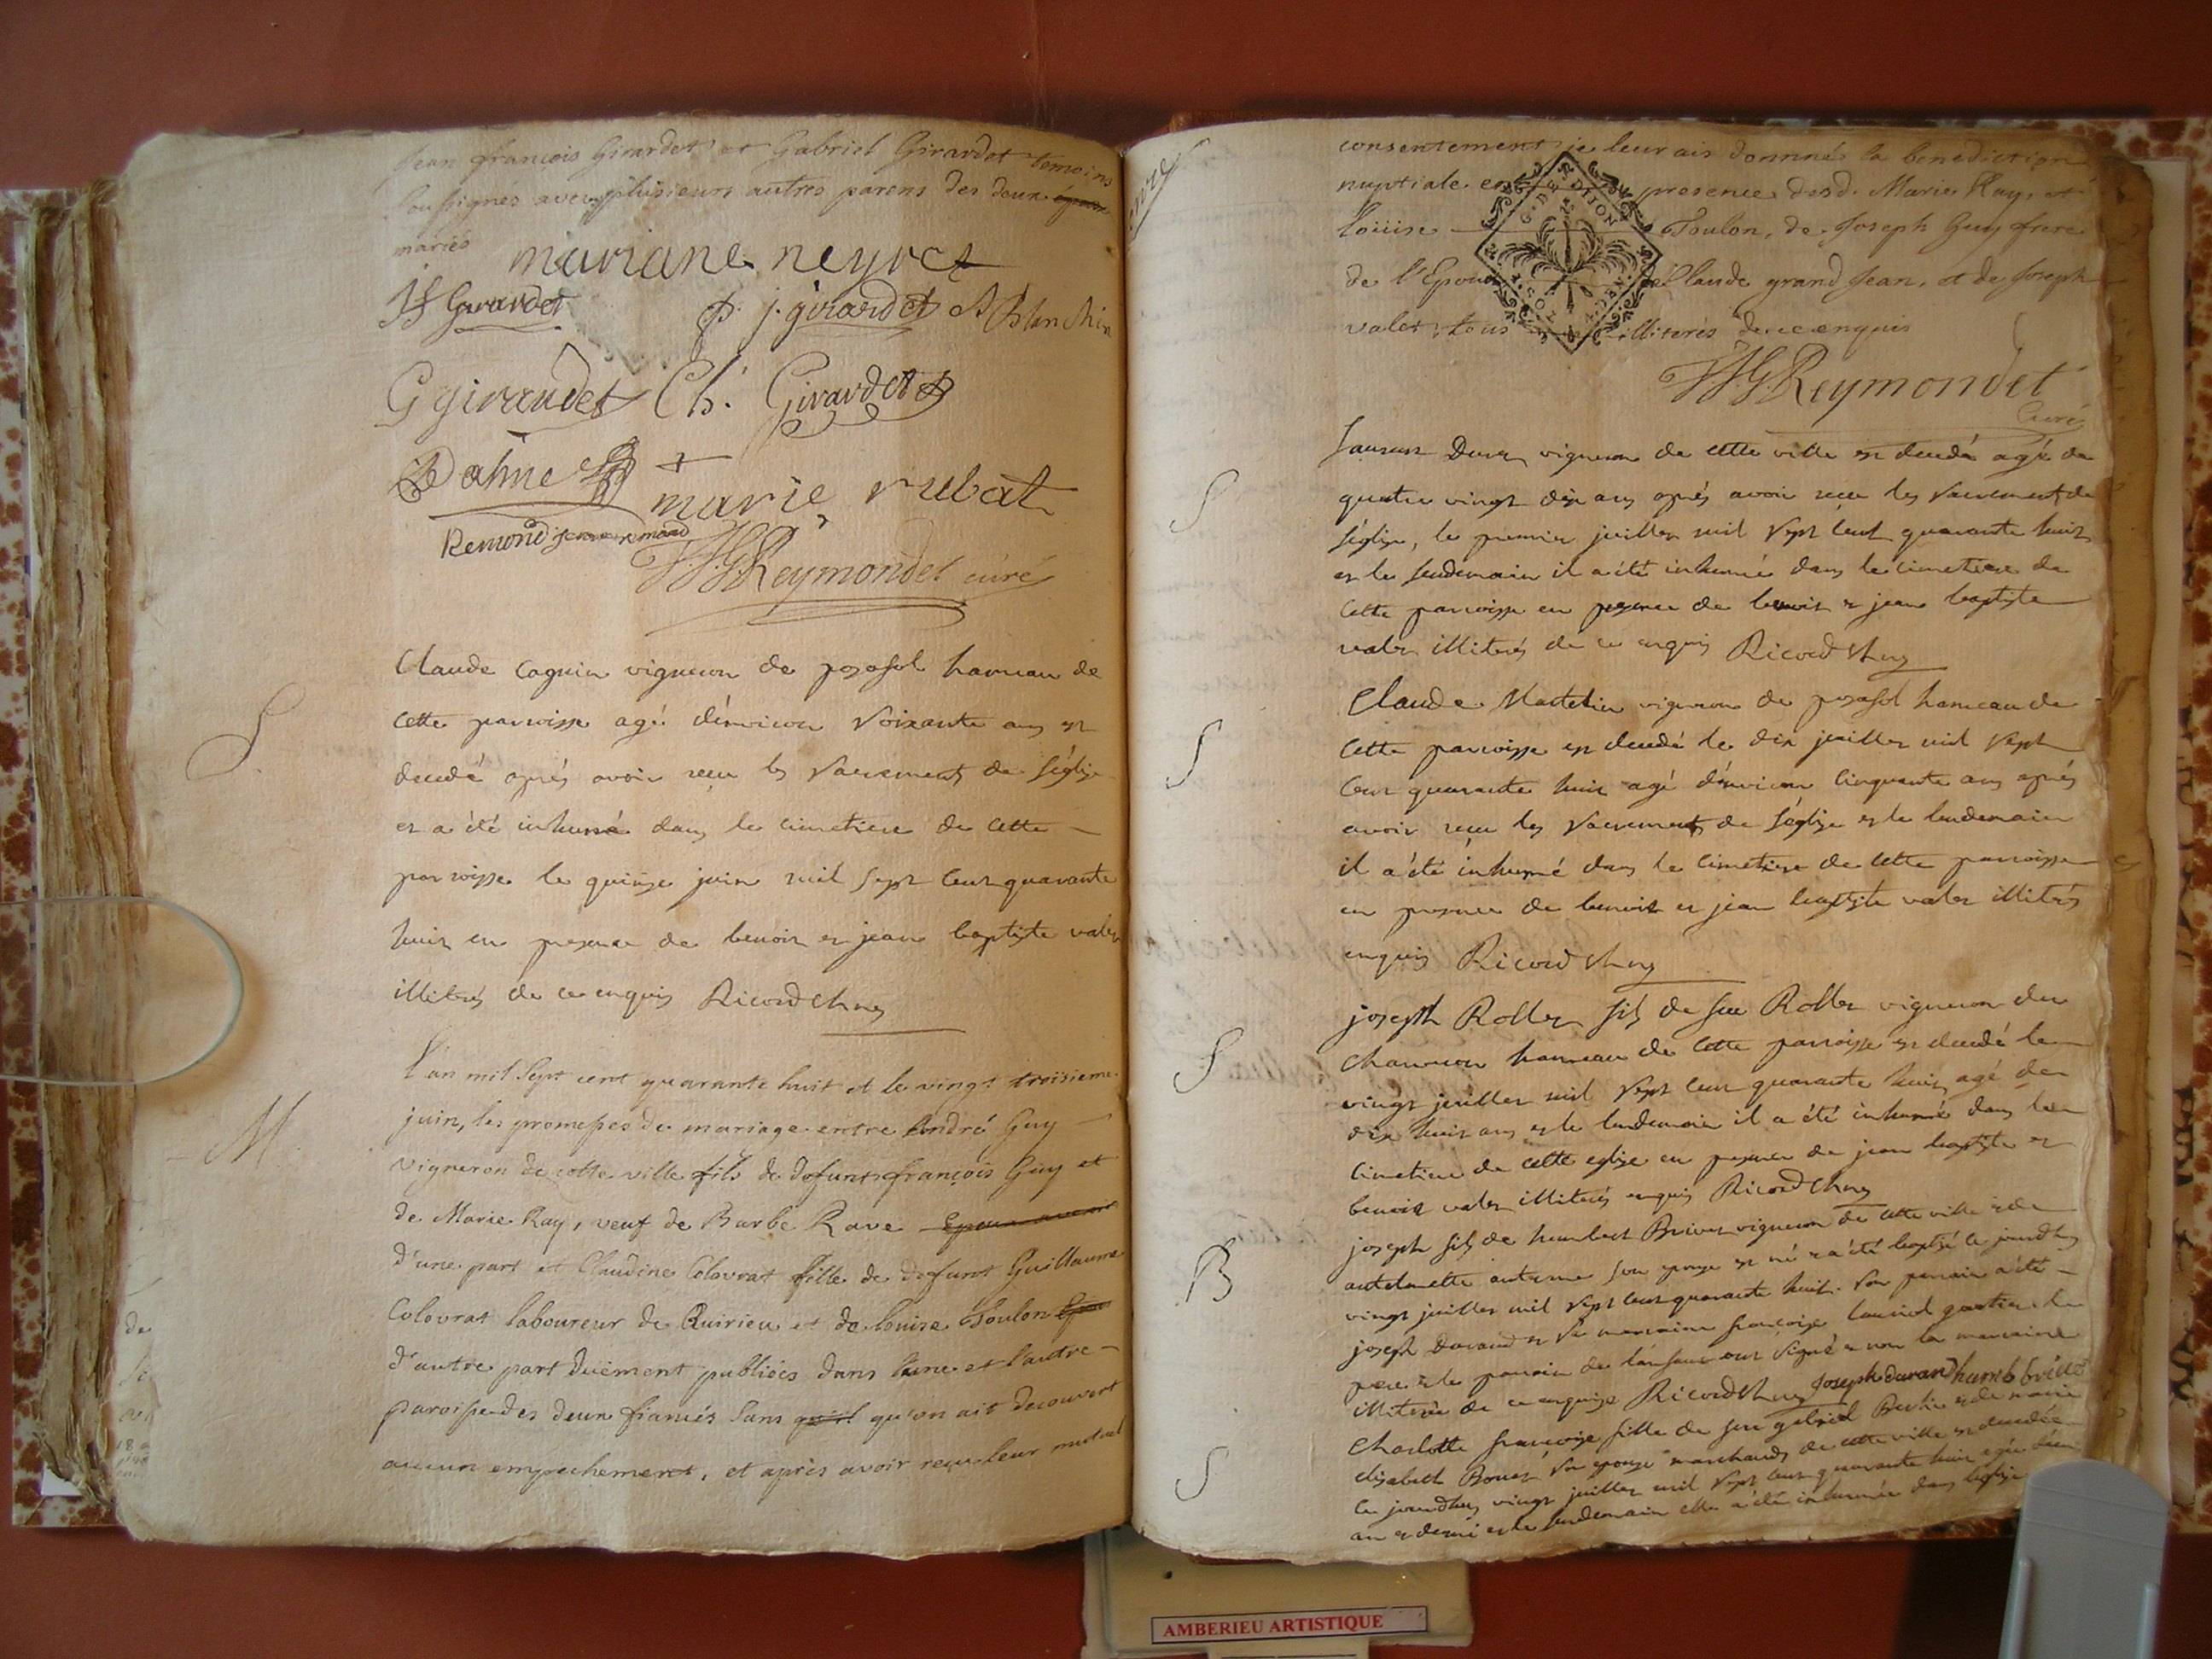 Jean françois Girardet et Gabriel Girardet temoins
soussignes avec plusieurs autres parens des deux epoux
mariés
mariane neyret
JF Girardet p. j. girardet A Blanchin
G girardet Ch. Girardet
Dahne
marie rubat
Remond
J.G. Reymondet curé
S
Claude Cagnin vigneron de posafol hameau de
cette parroisse agé d'environ soixante ans est
decedé aprés avoir reçu les sacrements de l'église
et a été inhumé dans le cimetiere de cette
parroisse le quinze juin mil sept cent quarante
huit en presence de benoit et jean baptiste valet
illiterés de ce enquis Ricord
M.
L'an mil sept cent quarante huit et le vingt troisieme
juin, les promesses de mariage entre André Guy
vigneron de cette ville fils de defunt françois Guy et
de Marie Ray, veuf de Barbe Rave
d'une part et Claudine Colovrat fille de defunt Guillaume
Colovrat laboureur de Ruirieu et de louise Toulon
d'autre part duëment publiées dans l'une et l'autre
paroisse des deux fiancés sans qu'il qu'on ait decouvert
aucun empechement, et après avoir reçu leur mutuel
consentement je leur ais donnné la benediction
nuptiale en presence desd. Marie Ray, et
loüise Toulon, de Joseph Guy frere
de l'Epoux de Claude grand Jean, et de Joseph
valet tous illiterés de ce enquis
G. DE DIJON
J.G. Reymondet
Curé
S
quatre vingt dix ans aprés avoir reçu les sacrements de
l'église, le premier juillet mil sept cent quarante huit
et le lendemain il a été inhumé dans le cimetiere de
cette parroisse en presence de benoit et jean baptiste
valet illiterés de ce enquis Ricord
S
Claude Martelin vigneron de posafol hameau de
cette parroisse est decedé le dix juillet mil sept
cent quarante huit agé d'environ cinquante ans aprés
avoir reçu les sacrements de l'église et le lendemain
il a été inhumé dans le cimetiere de cette parroisse
en presence de benoit et jean baptiste valet illiterés
enquis Ricord
S
joseph Rollet fils de feu Rollet vigneron du
hameau de cette parroisse est decedé le
vingt juillet mil sept cent quarante huit agé de
dix huit ans et le lendemain il a été inhumé dans le
cimetiere de cette eglise en presence de jean baptiste et
benoit valet illiterés enquis Ricord
B
joseph fils de humbert vigneron de cette ville et de
son epouse est né et a été baptisé ce jourdhuy
vingt juillet mil sept cent quarante huit. son parrain a été
joseph Davand et sa marraine françoise
pere et le parrain de l'enfant ont signé et non la marraine
illiterée de ce enquise Ricord Joseph davand
S
Charlotte françoise fille de feu gabriel et de marie
elisabeth son epouse marchands de cette ville est decedée
ce jourdhuy vingt juillet mil sept cent quarante huit
an et demi et le lendemain elle a été inhumée dans l'église
AMBERIEU ARTISTIQUE